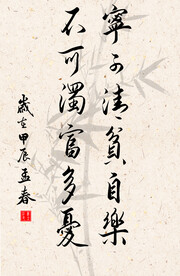 寧可清貧自樂
不可濁富多憂
歲在甲辰孟春